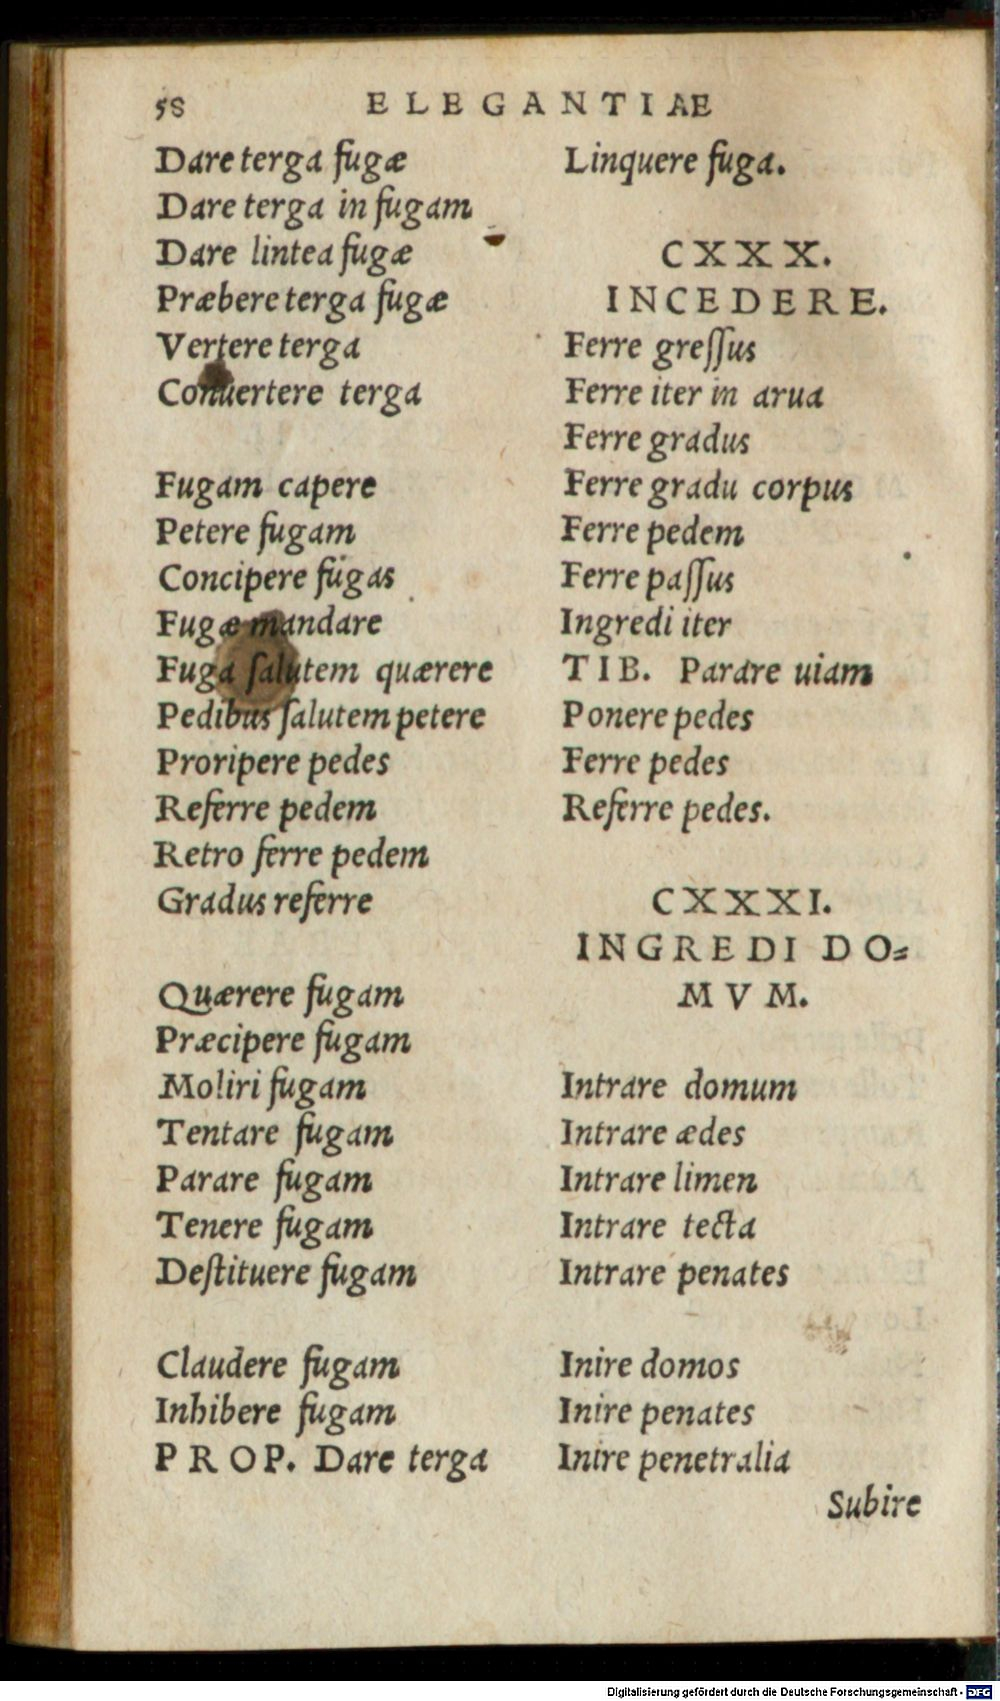 58 ELEGANTIAE
Dare terga fugæ
Dare terga in fugam
Dare lintea fugæ
Præbere terga fugæ
Vertere terga
Conuertere terga
Fugam capere
Petere fugam
Concipere fugas
Fugæ mandare
Fuga ſalutem quærere
Pedibus ſalutem petere
Proripere pedes
Referre pedem
Retro ferre pedem
Gradus referre
Quærere fugam
Præcipere fugam
Moliri fugam
Tentare fugam
Parare fugam
Tenere fugam
Deſtituere fugam
Claudere fugam
Inhibere fugam
PROP. Dare terga
Linquere fuga.
CXXX.
INCEDERE.
Ferre greſſus
Ferre iter in arua
Ferre gradus
Ferre gradu corpus
Ferre pedem
Ferre paſſus
Ingredi iter
TIB. Parare uiam
Ponere pedes
Ferre pedes
Referre pedes.
CXXXI.
INGREDI DO=
MVM.
Intrare domum
Intrare ædes
Intrare limen
Intrare tecta
Intrare penates
Inire domos
Inire penates
Inire penetralia
Subire
Digitalisierung gefördert durch die Deutsche Forschungsgemeinschaft - DFG